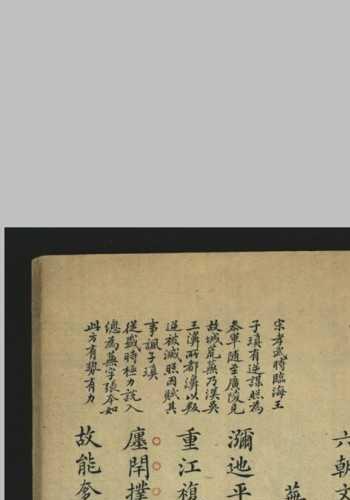 宋孝武時臨海王
子瑱有逆謀照為
叅軍隨至廣陵見
故城荒蕪乃漢吳
王濞所都濞以叛
逆被滅照因賦其
事諷子瑱
從盛時極力說入
總為蕪字張本如
此方有勢有力
六朝文
蕪
瀰迆平
重江複
廛閈撲
故能奓